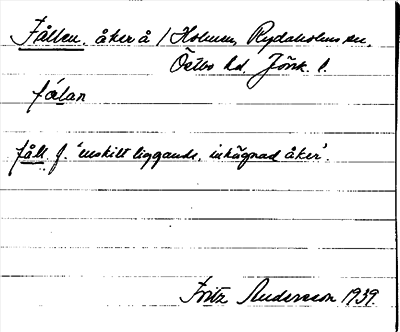 Fållen, åker å / Holmen, Rydaholms sn,
Östbo hd, Jönk. l.
fålan
fåll f. 'enskilt liggande, inhägnad åker'.
Fritz Andersson 1939.